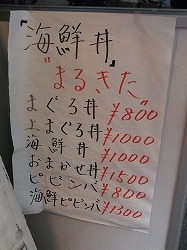 「海鮮丼」
"まるきた"
まぐろ丼 ¥800
上まぐろ丼 ¥1000
海鮮丼 ¥1000
おまかせ丼 ¥1500
ビビンバ ¥800
海鮮ビビンバ ¥1300